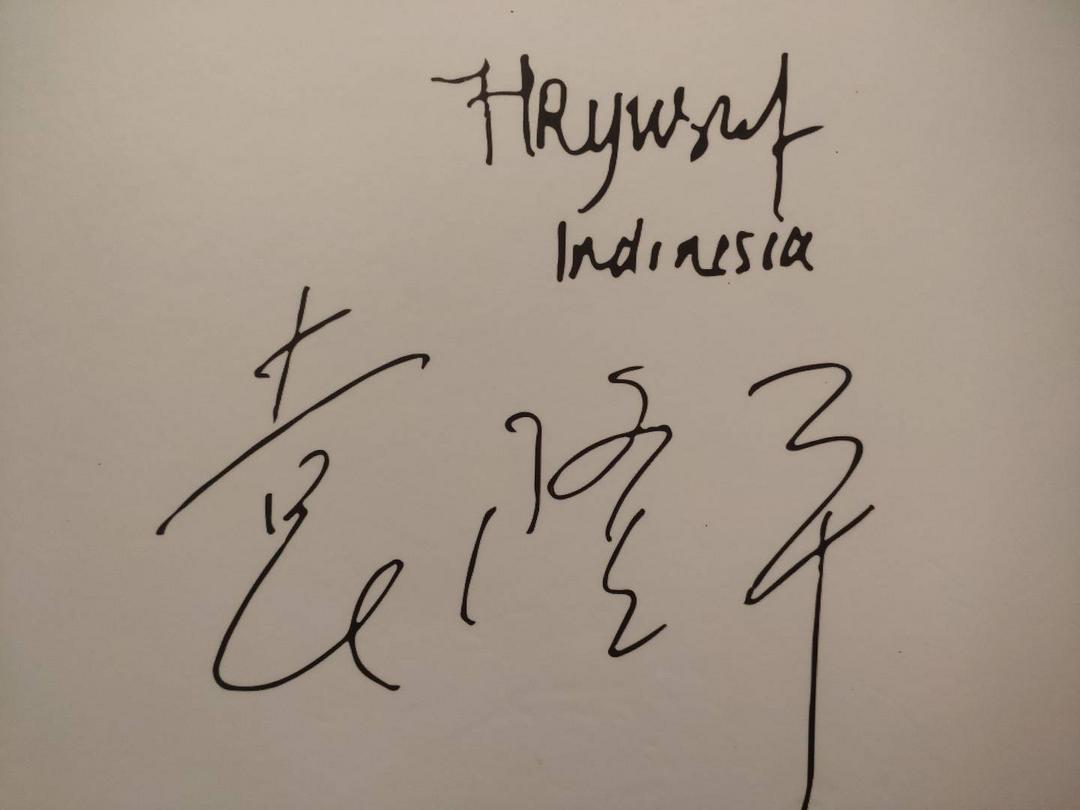 HRYusuf
Indonesia
袁隆平